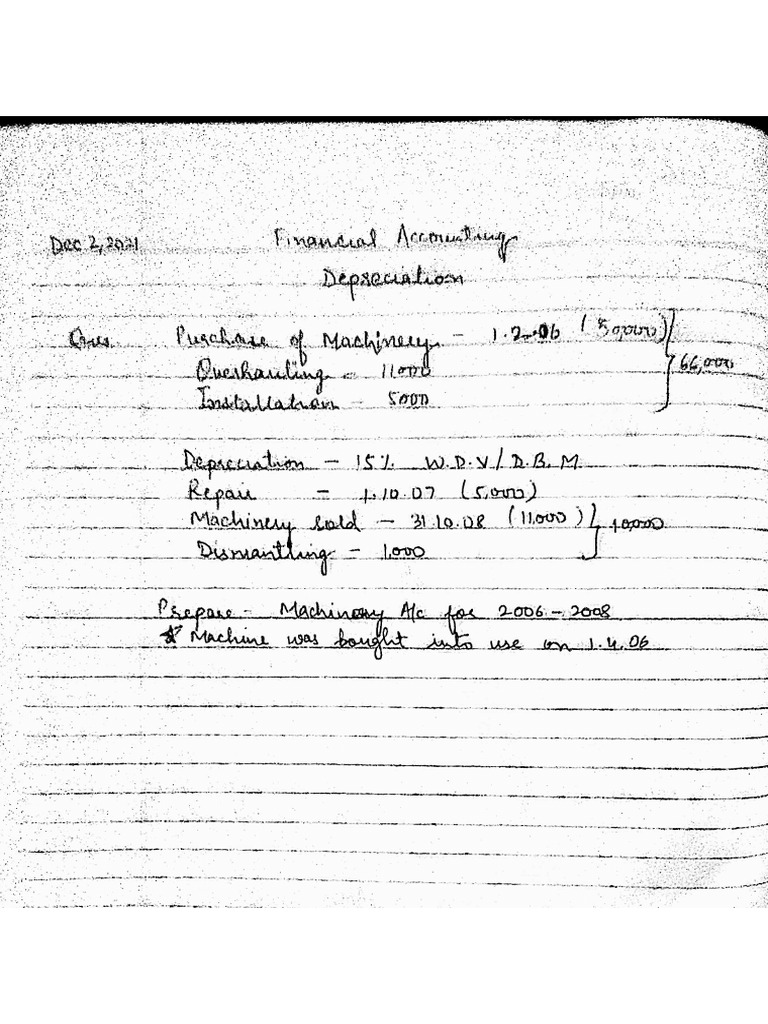 Dec 2, 2021 Financial Accounting
Depreciation
Ques Purchase of Machinery - 1.2.06 (50,000) } 66,000
Overhauling - 11000
Installation - 5000
Depreciation - 15% W.D.V / D.B.M
Repair - 1.10.07 (5,000)
Machinery sold - 31.10.08 (11,000) } 10,000
Dismantling - 1,000
Prepare - Machinery A/c for 2006 - 2008
* Machine was bought into use on 1.4.06